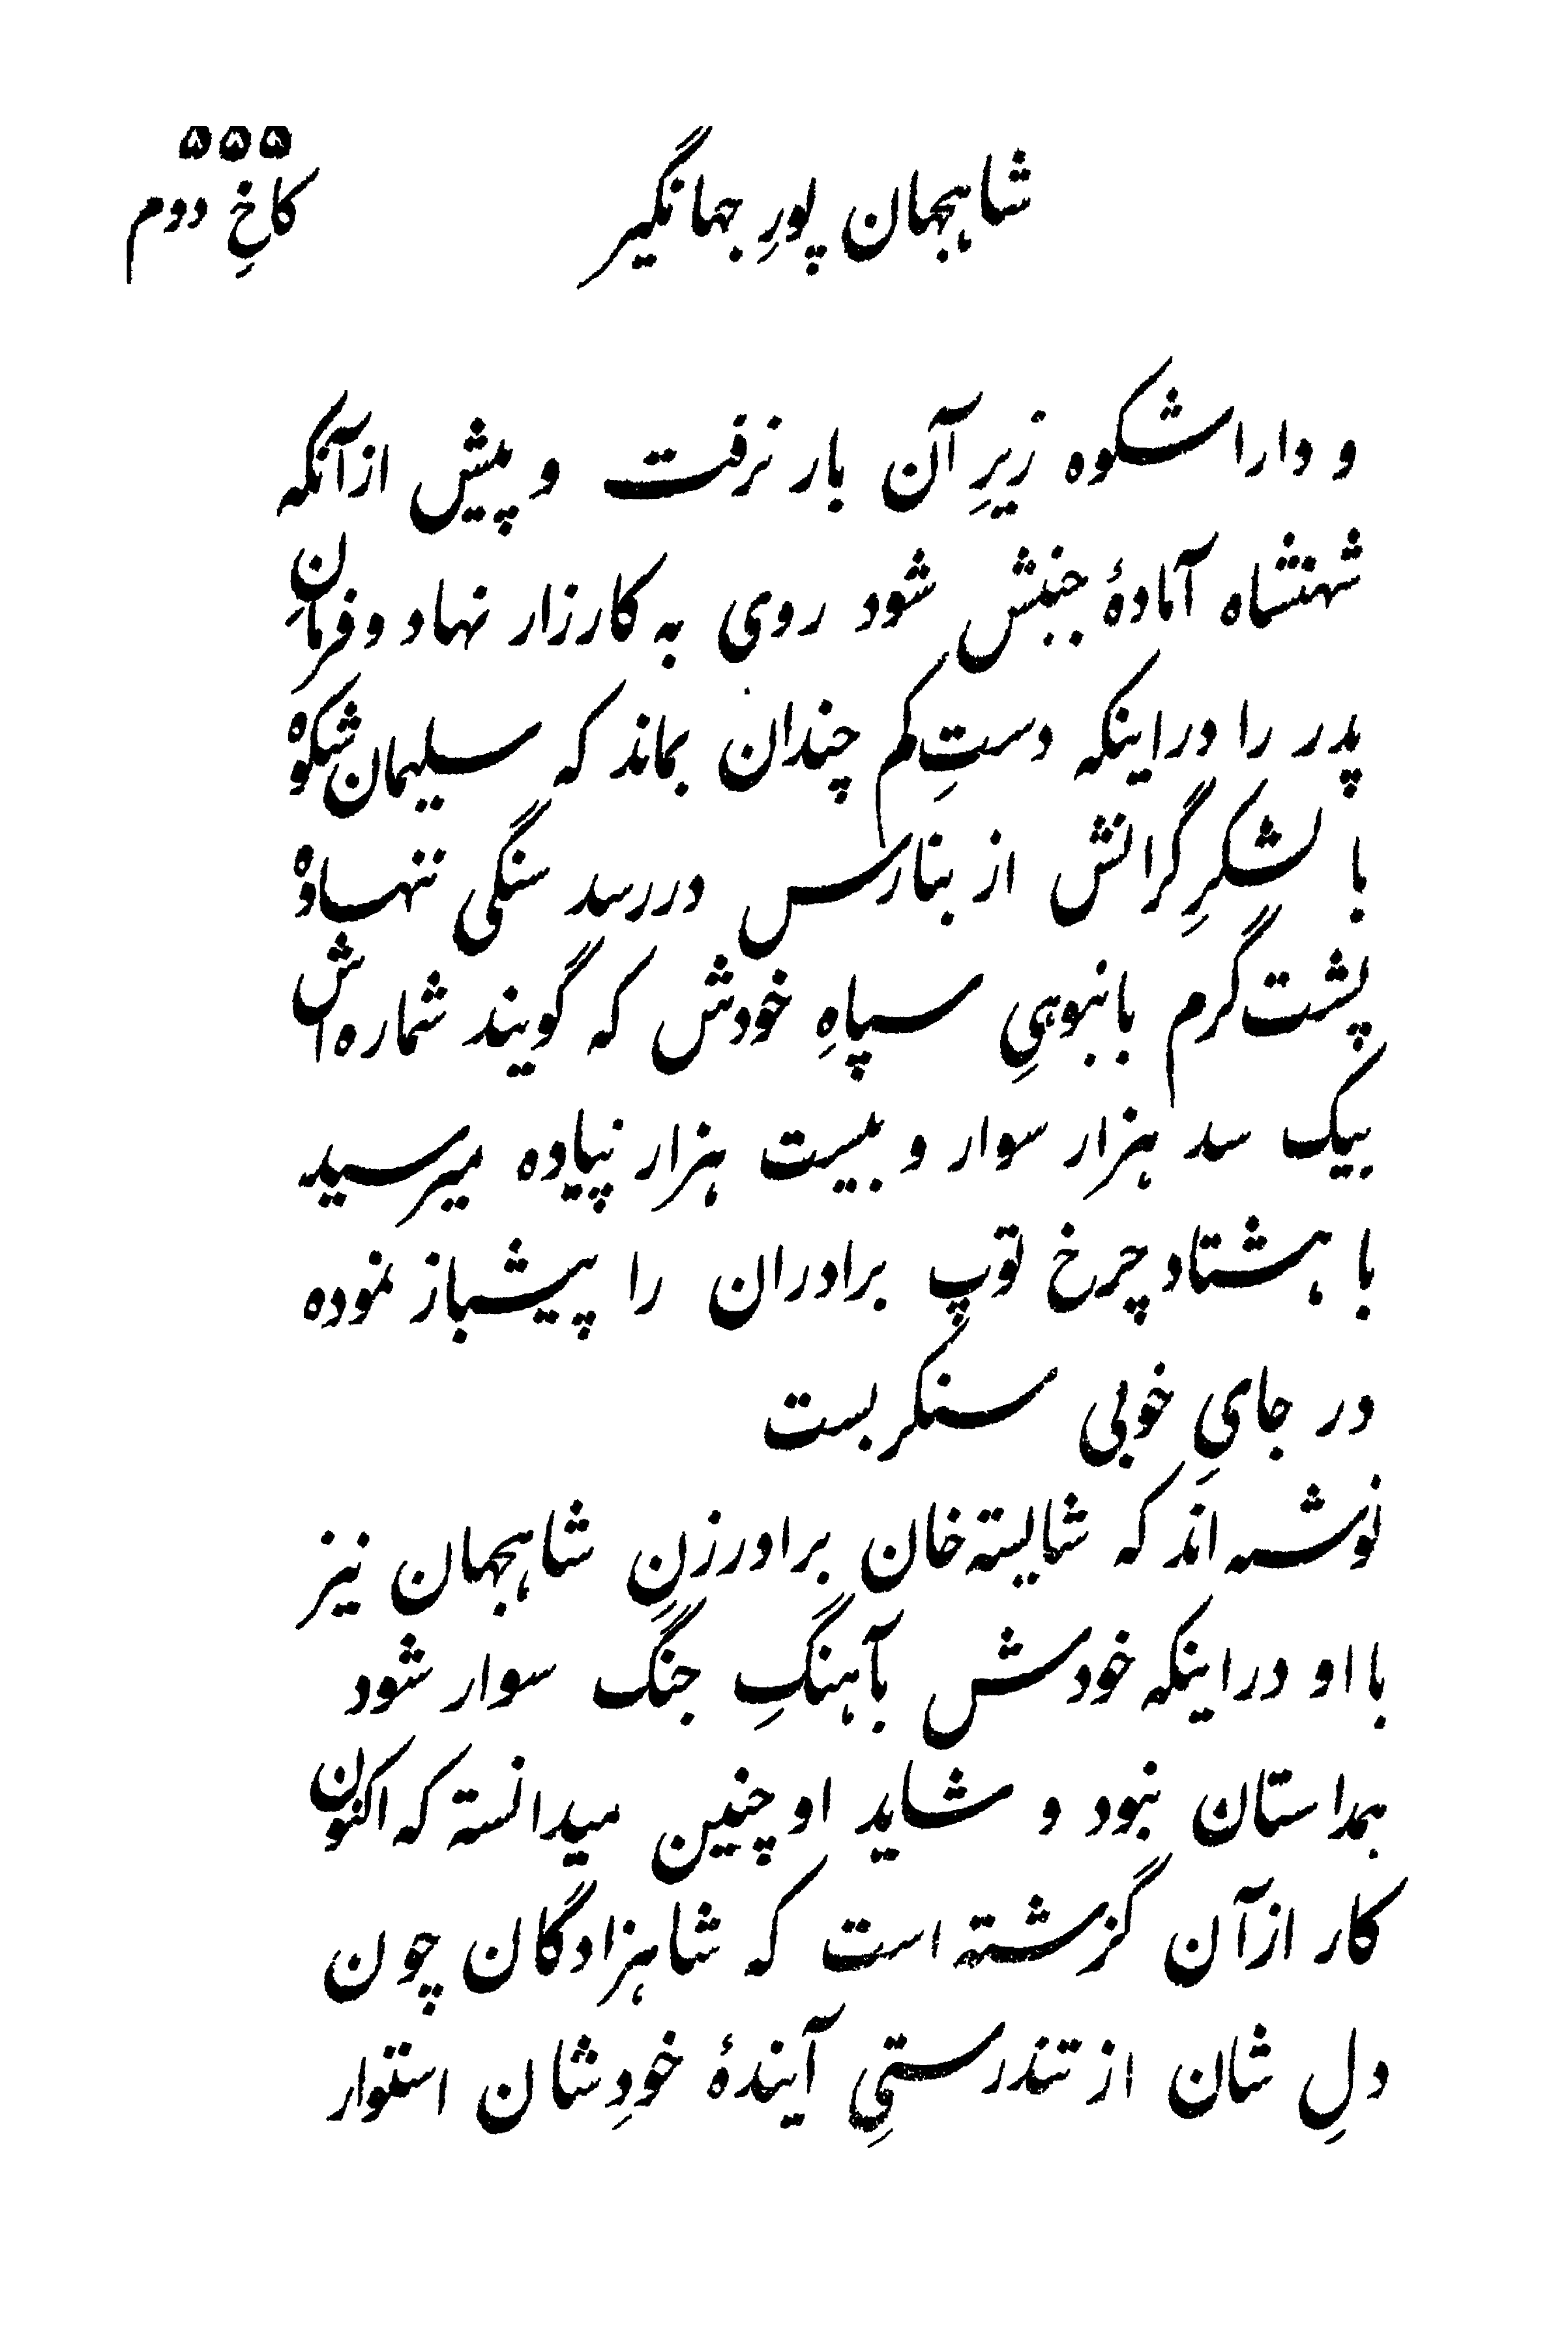 ۵۵۵
شاهجهان پورِ جهانگیر
کاخِ دوم
و داراشکوه زیرِ آن بار نرفت و پیش از آنکه
شهنشاه آمادهٔ جنبش شود روی به کارزار نهاد و فرمانِ
پدر را در اینکه دستِ کم چندان بماند که سلیمان شکوه
با لشکرِ گرانش از بنارس در رسد سنگی ننهاده
پشت گرم بانبوهیِ سپاهِ خودش که گویند شماره اش
بیک سد هزار سوار و بیست هزار پیاده میرسید
با هشتاد چرخ توپ برادران را پیشباز نموده
در جایِ خوبی سنکر بست
نوشته اند که شایسته خان برادر زنِ شاهجهان نیز
با او در اینکه خودش بآهنگِ جنگ سوار شود
همداستان نبود و شاید او چنین میدانسته که اکنون
کار از آن گزشته است که شاهزادگان چون
دلِ شان از تندرستیِ آیندهٔ خودِشان استوار